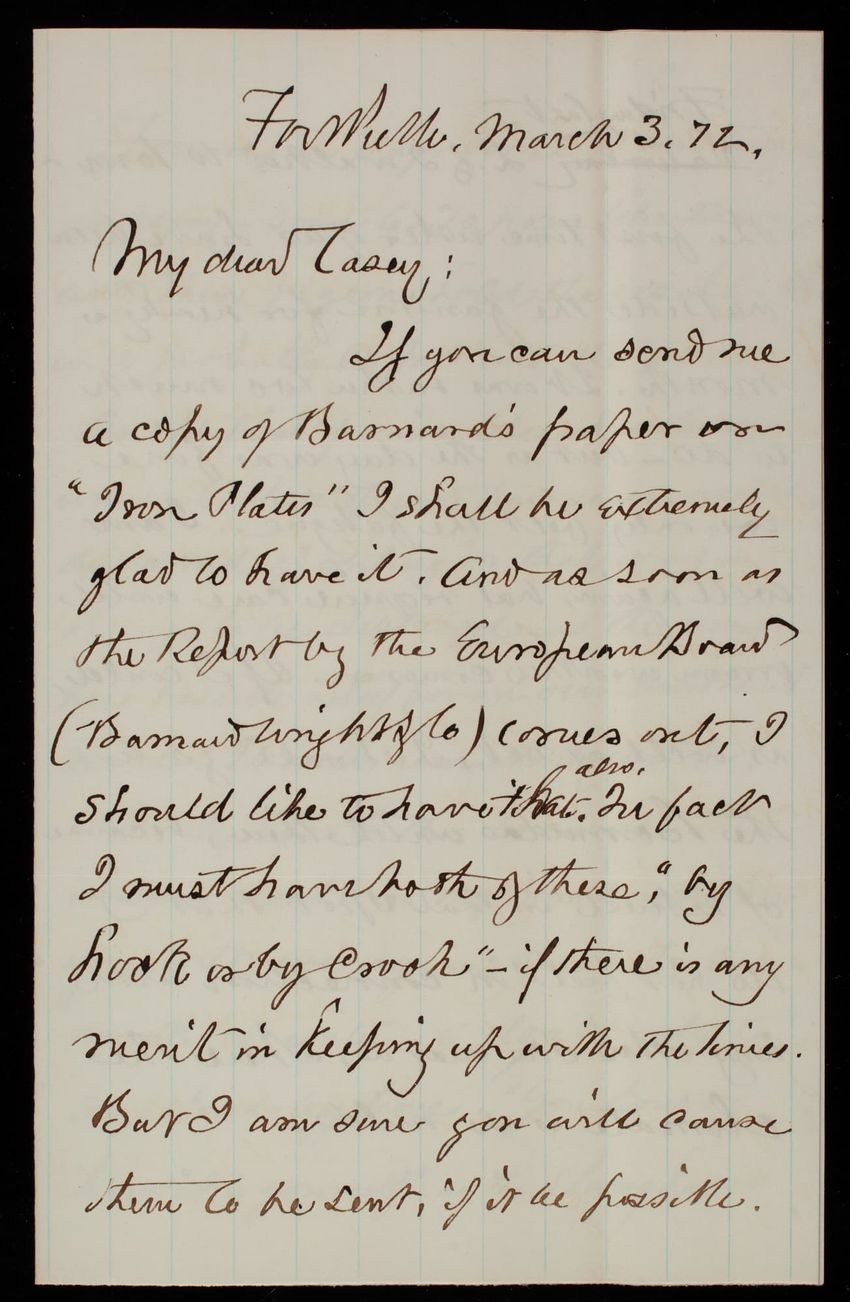 March 3. 72.
My dear Casey:
If you can send me
a copy of Barnard's paper on
"Iron Plates" I shall be extremely
glad to have it. And as soon as
the Report by the European Board
(Barnard Wright & Co) comes out, I
should like to have that also. In fact
I must have both of these, "by
hook or by crook" - if there is any
merit in keeping up with the times.
But I am sure you will cause
them to be sent, if it be possible.